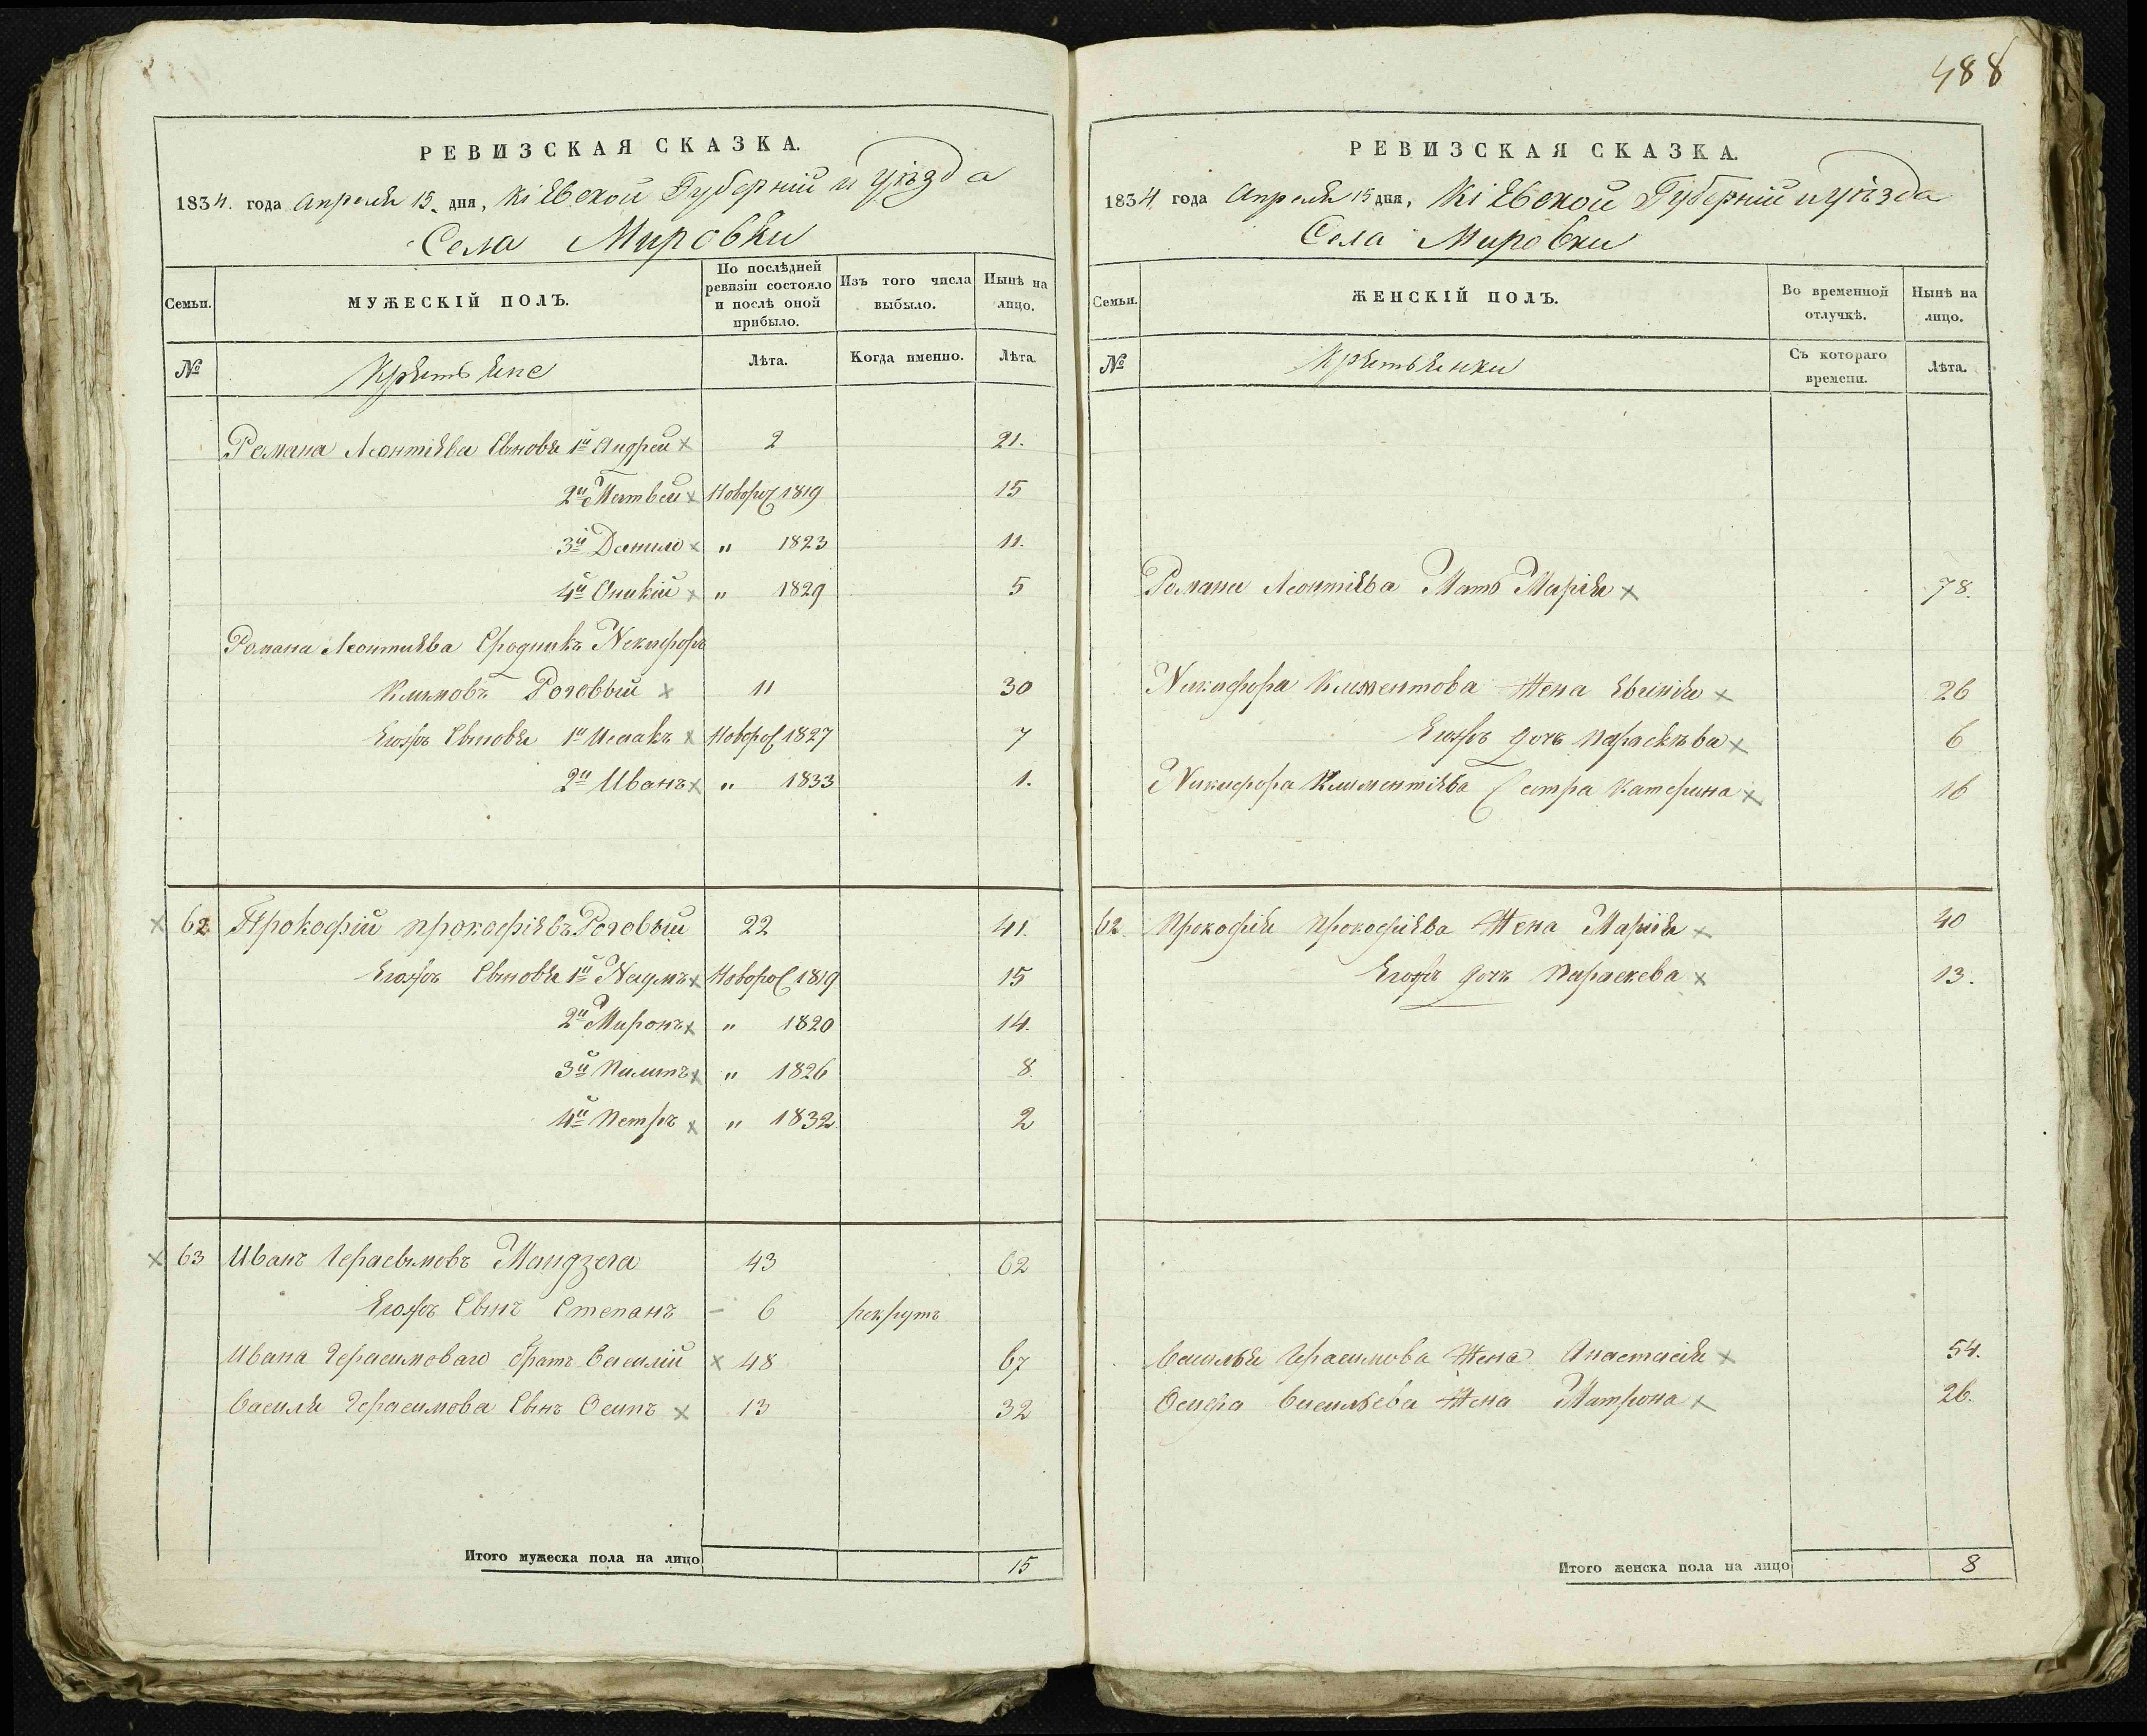 488
РЕВИЗСКАЯ СКАЗКА.
1834. года Апреля 15. дня, Кіевской Губерніи и уѣзда
Села Мировки
Семьи.
МУЖЕСКІЙ ПОЛЪ.
По послѣдней ревизіи состояло и послѣ оной прибыло.
Изъ того числа выбыло.
Нынѣ на лицо.
№
Крѣстьяне
Лѣта.
Когда именно.
Лѣта.
Романа Леонтіева Сыновья 1й Андрей 2 21.
2й Матвей Новорож 1819 15
3й Данило " 1823 11.
4й Оникій " 1829 5
Романа Леонтиева Сродникъ Никифоръ
Климовъ Роговый 11 30
Егожъ Сыновья 1й Исаакъ Новорож 1827 7
2й Иванъ " 1833 1.
62 Прокофій Прокофіевъ Роговый 22 41.
Егожъ Сыновья 1й Наумъ Новорож 1819 15
2й Миронъ " 1820 14.
3й Пилипъ " 1826 8.
4й Петръ " 1832 2
63 Иванъ Герасымовъ Мандзега 43 62
Егожъ Сынъ Степанъ - 6 рекрутъ
Ивана Герасимоваго братъ Василій 48 67
Василя Герасимова Сынъ Осипъ 13 32
Итого мужеска пола на лицо 15
РЕВИЗСКАЯ СКАЗКА.
1834 года Апреля 15 дня, Кіевской Губерніи и уѣзда
Села Мировки
Семьи.
ЖЕНСКІЙ ПОЛЪ.
Во временной отлучкѣ.
Нынѣ на лицо.
№
Крѣстьянки
Съ котораго времени.
Лѣта.
Романа Леонтіева Мать Марія 78.
Никифора Климентова Жена Евгенія 26
Егожъ дочь Параскѣва 6
Никифора Климентіева Сестра Катерина 16
62. Прокофія Прокофіева Жена Марія 40
Егожъ дочъ Параскева 13.
Василья Герасимова Жена Анастасія 54.
Осифа Васильева Жена Матрона 26.
Итого женска пола на лицо 8